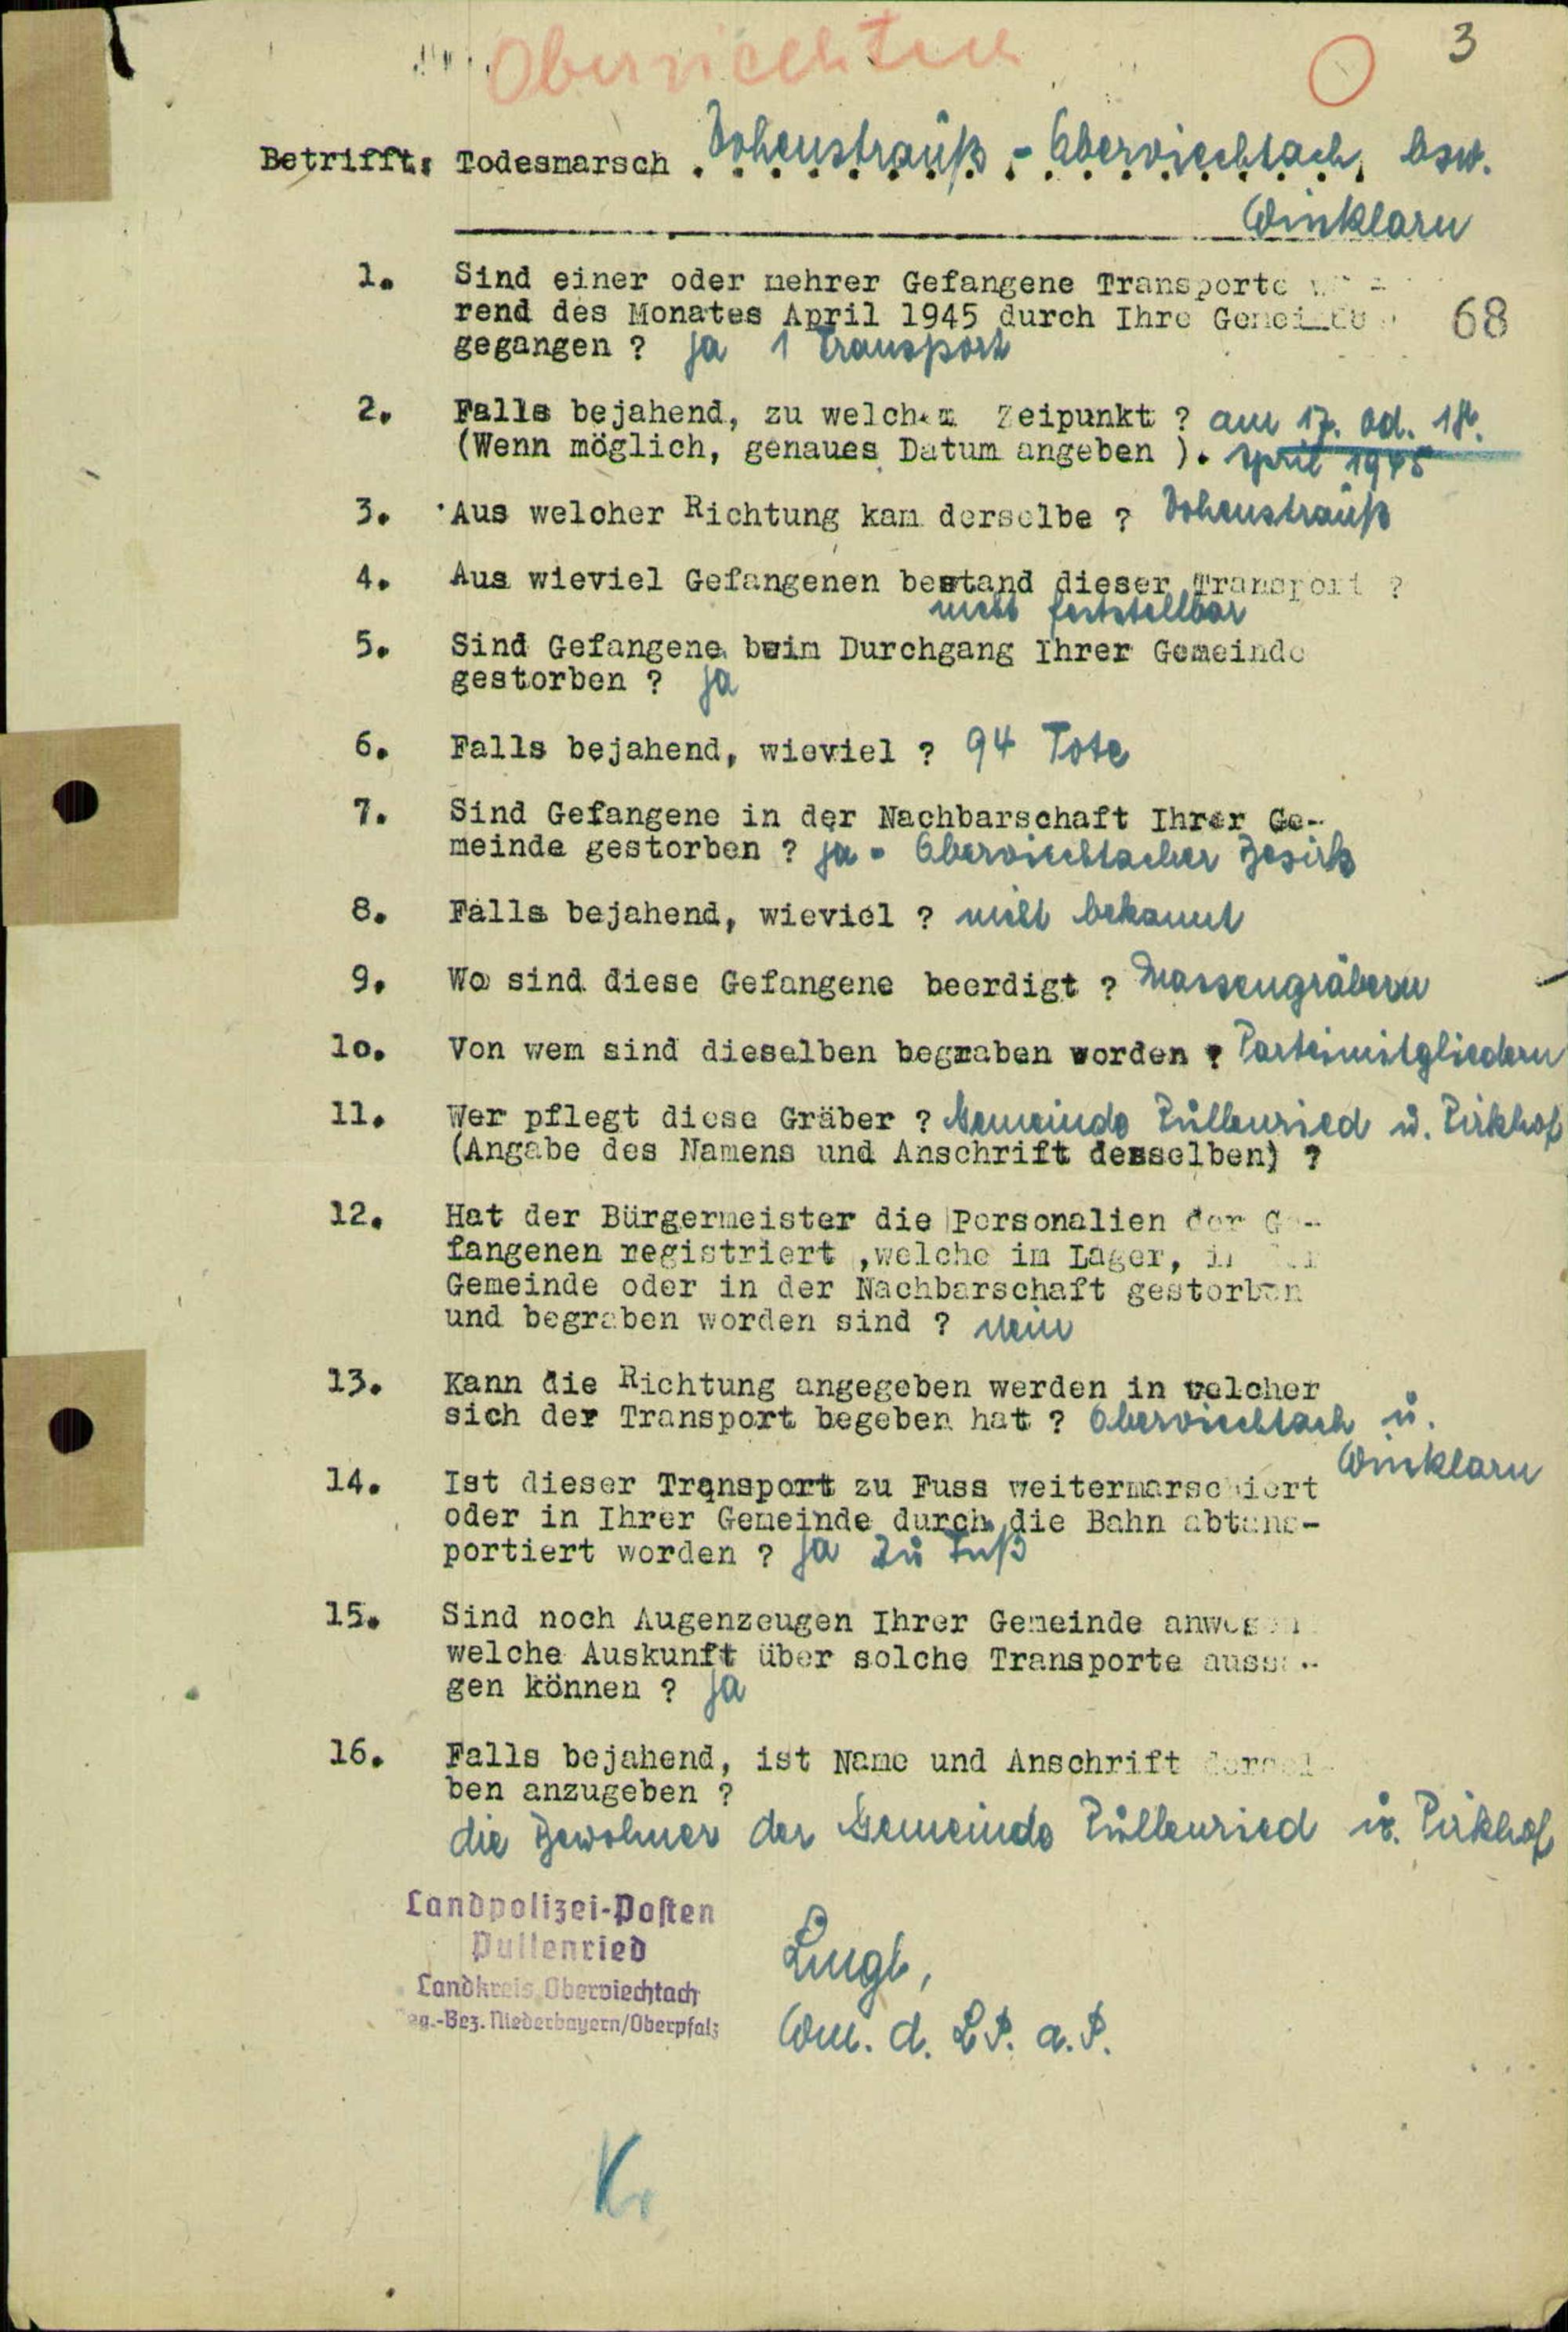 Oberviechtach
3
Betrifft: Todesmarsch Vohenstrauß - Oberviechtach, bzw.
Winklarn
1. Sind einer oder mehrer Gefangene Transporte
rend des Monates April 1945 durch Ihre Gemeinde
68
gegangen ? ja 1 Transport
2. Falls bejahend, zu welchem Zeipunkt ? am 17. od. 18.
(Wenn möglich, genaues Datum angeben ). April 1945
3. Aus welcher Richtung kam derselbe ? Vohenstrauß
4. Aus wieviel Gefangenen bestand dieser Transport ?
nicht feststellbar
5. Sind Gefangene beim Durchgang Ihrer Gemeinde
gestorben ? ja
6. Falls bejahend, wieviel ? 94 Tote
7. Sind Gefangene in der Nachbarschaft Ihrer Ge-
meinde gestorben ? ja - Oberviechtacher Bezirk
8. Falls bejahend, wieviel ? nicht bekannt
9. Wo sind diese Gefangene beerdigt ? Massengräbern
10. Von wem sind dieselben begraben worden ? Parteimitgliedern
11. Wer pflegt diese Gräber ? Gemeinde Pullenried u. Pirkhof
(Angabe des Namens und Anschrift desselben) ?
12. Hat der Bürgermeister die Personalien der Ge-
fangenen registriert ,welche im Lager, in der
Gemeinde oder in der Nachbarschaft gestorben
und begraben worden sind ? nein
13. Kann die Richtung angegeben werden in welcher
sich der Transport begeben hat ? Oberviechtach u.
Winklarn
14. Ist dieser Transport zu Fuss weitermarschiert
oder in Ihrer Gemeinde durch die Bahn abtans-
portiert worden ? ja zu Fuß
15. Sind noch Augenzeugen Ihrer Gemeinde anwesen
welche Auskunft über solche Transporte aussa-
gen können ? ja
16. Falls bejahend, ist Name und Anschrift dersel-
ben anzugeben ?
die Bewohner der Gemeinde Pullenried u. Pirkhof
Landpolizei-Posten
Pullenried
Landkreis Oberviechtach
Reg.-Bez. Niederbayern/Oberpfalz
Wm. d. LP. a.P.